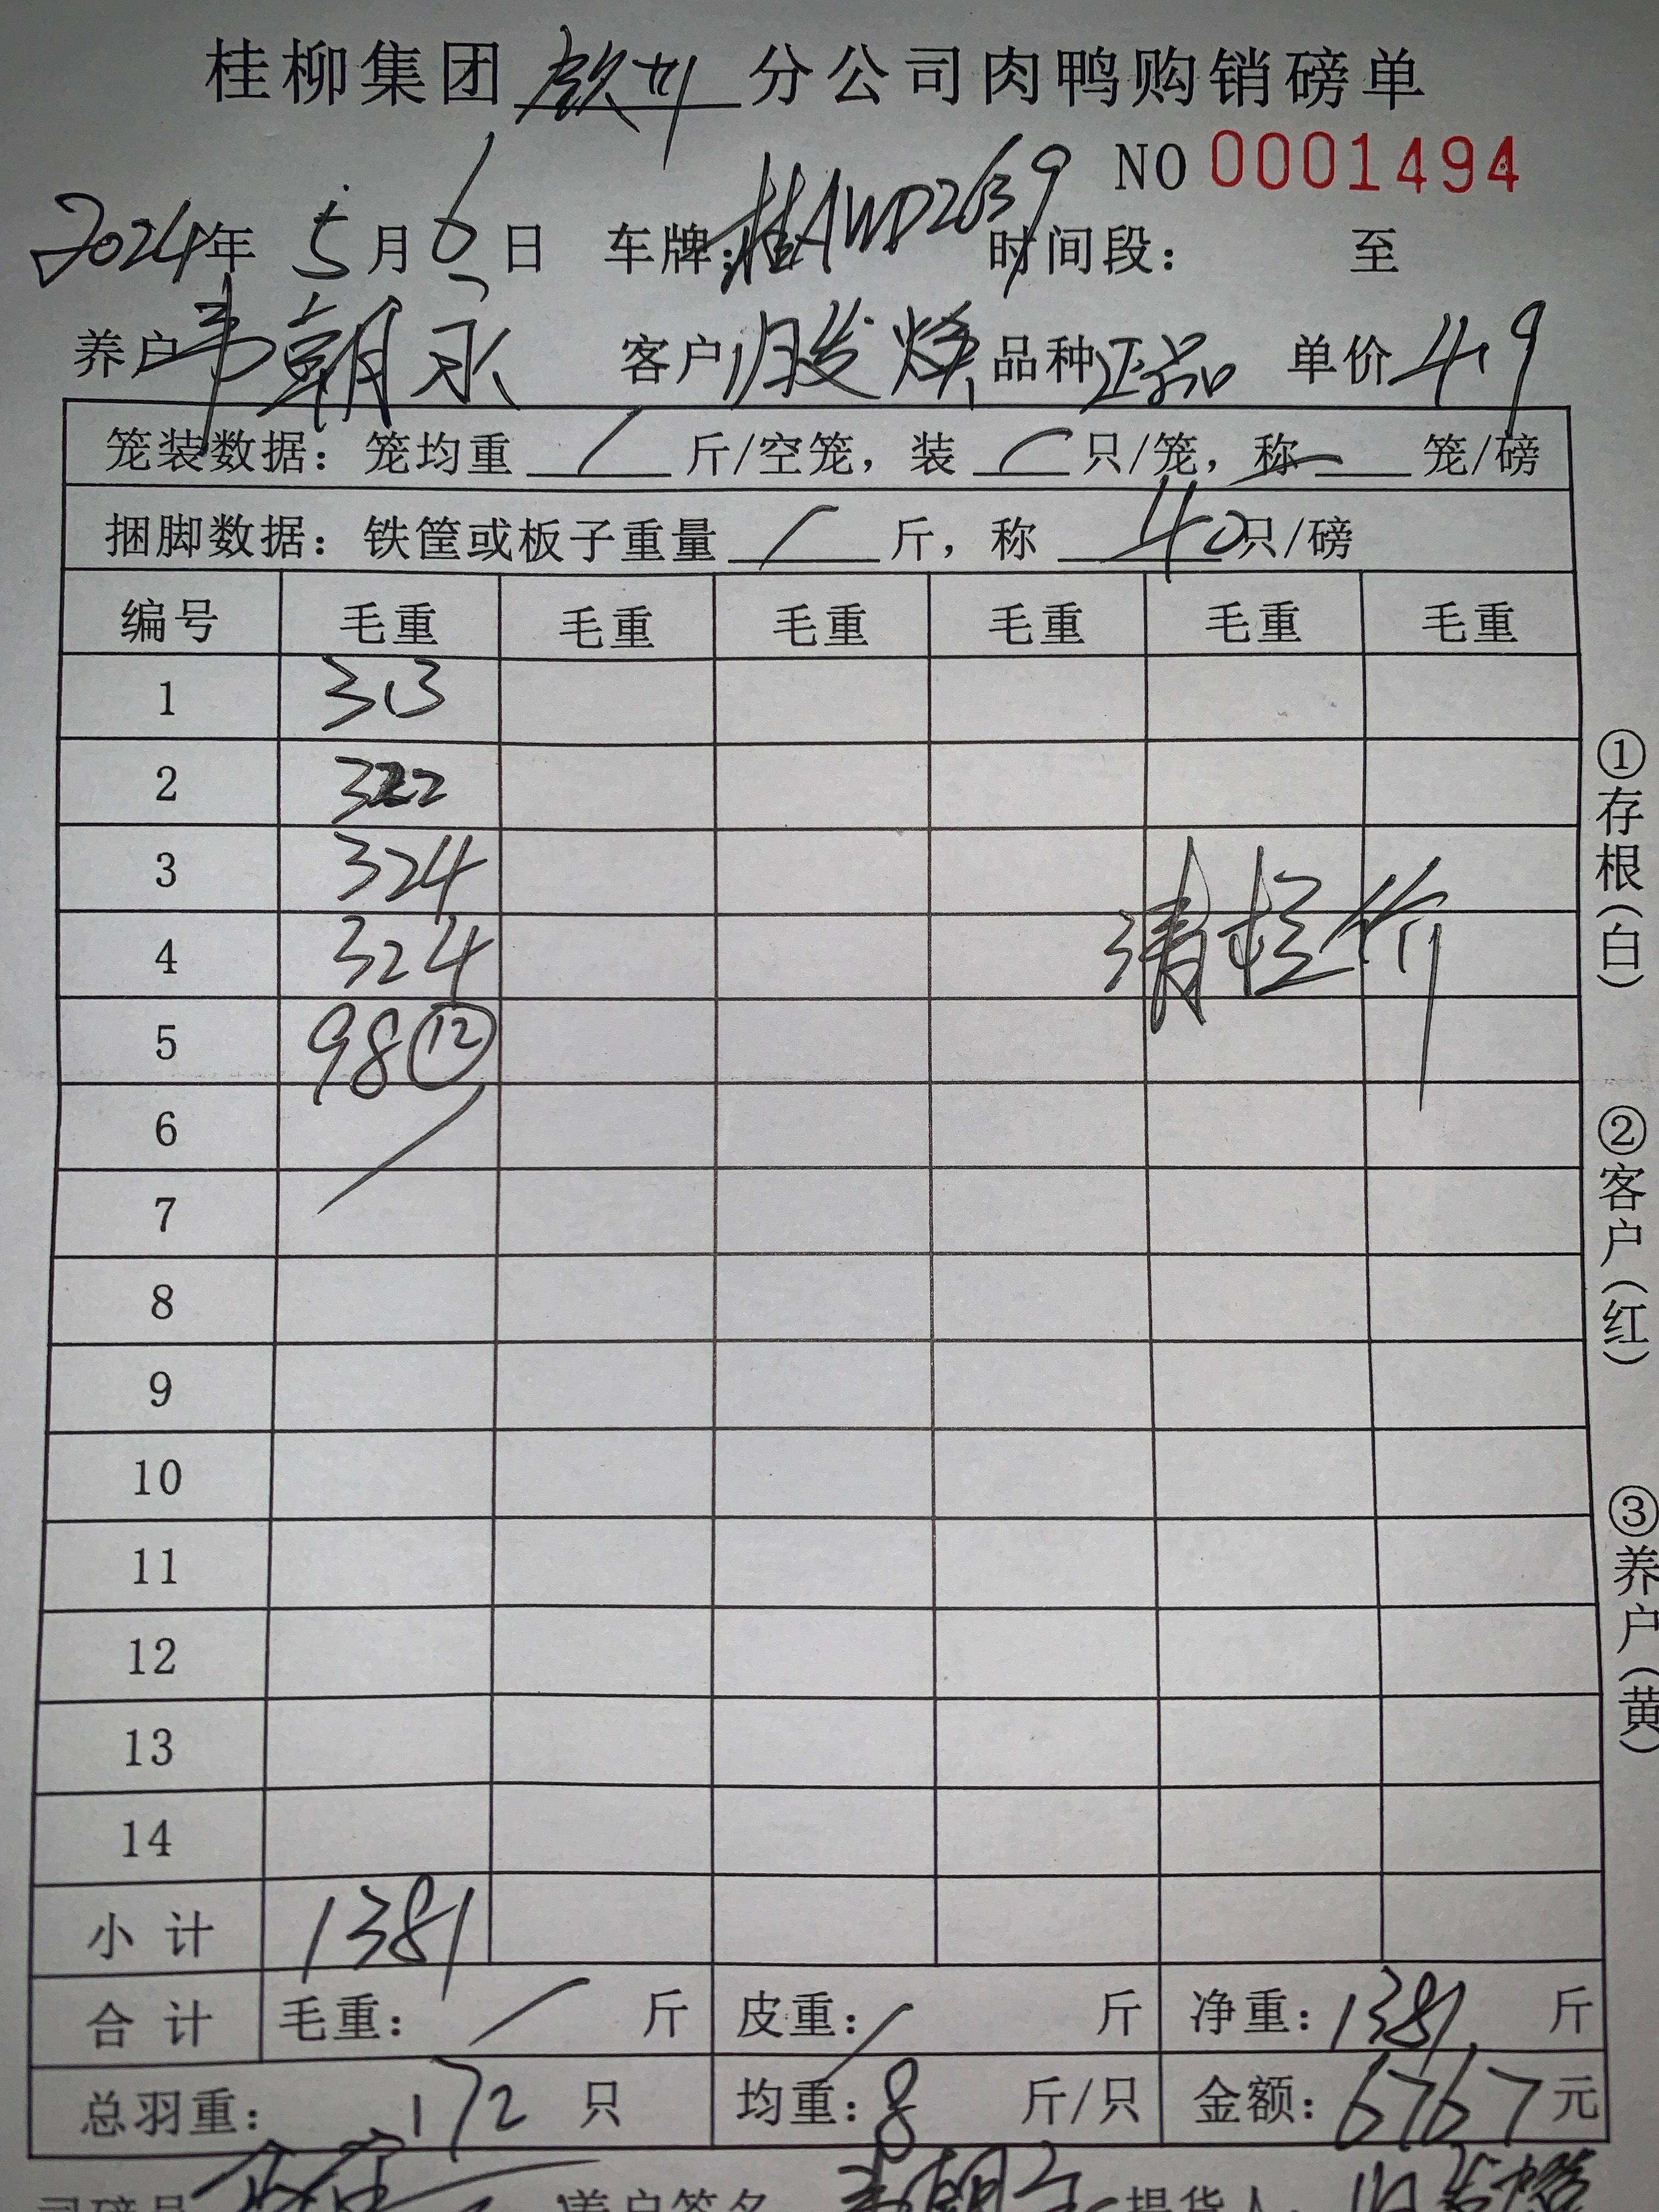 桂柳集团 钦州 分公司肉鸭购销磅单
NO 0001494
2024年 5月 6日 车牌:桂AWD2639 时间段: 至
养户 韦朝永 客户 品种 正品 单价 4.9
笼装数据:笼均重 / 斤/空笼,装 / 只/笼,称 / 笼/磅
捆脚数据:铁筐或板子重量 / 斤,称 40只/磅
编号 毛重 毛重 毛重 毛重 毛重 毛重
1 313
2 322
3 324
4 324
清栏价
5 98 ⑫
6
7
8
9
10
11
12
13
14
小计 1381
合计 毛重: / 斤 皮重: / 斤 净重:1381 斤
总羽重: 172 只 均重:8 斤/只 金额:6767元
司磅员 养户签名 韦朝永 提货人:
①存根(白)
②客户(红)
③养户(黄)